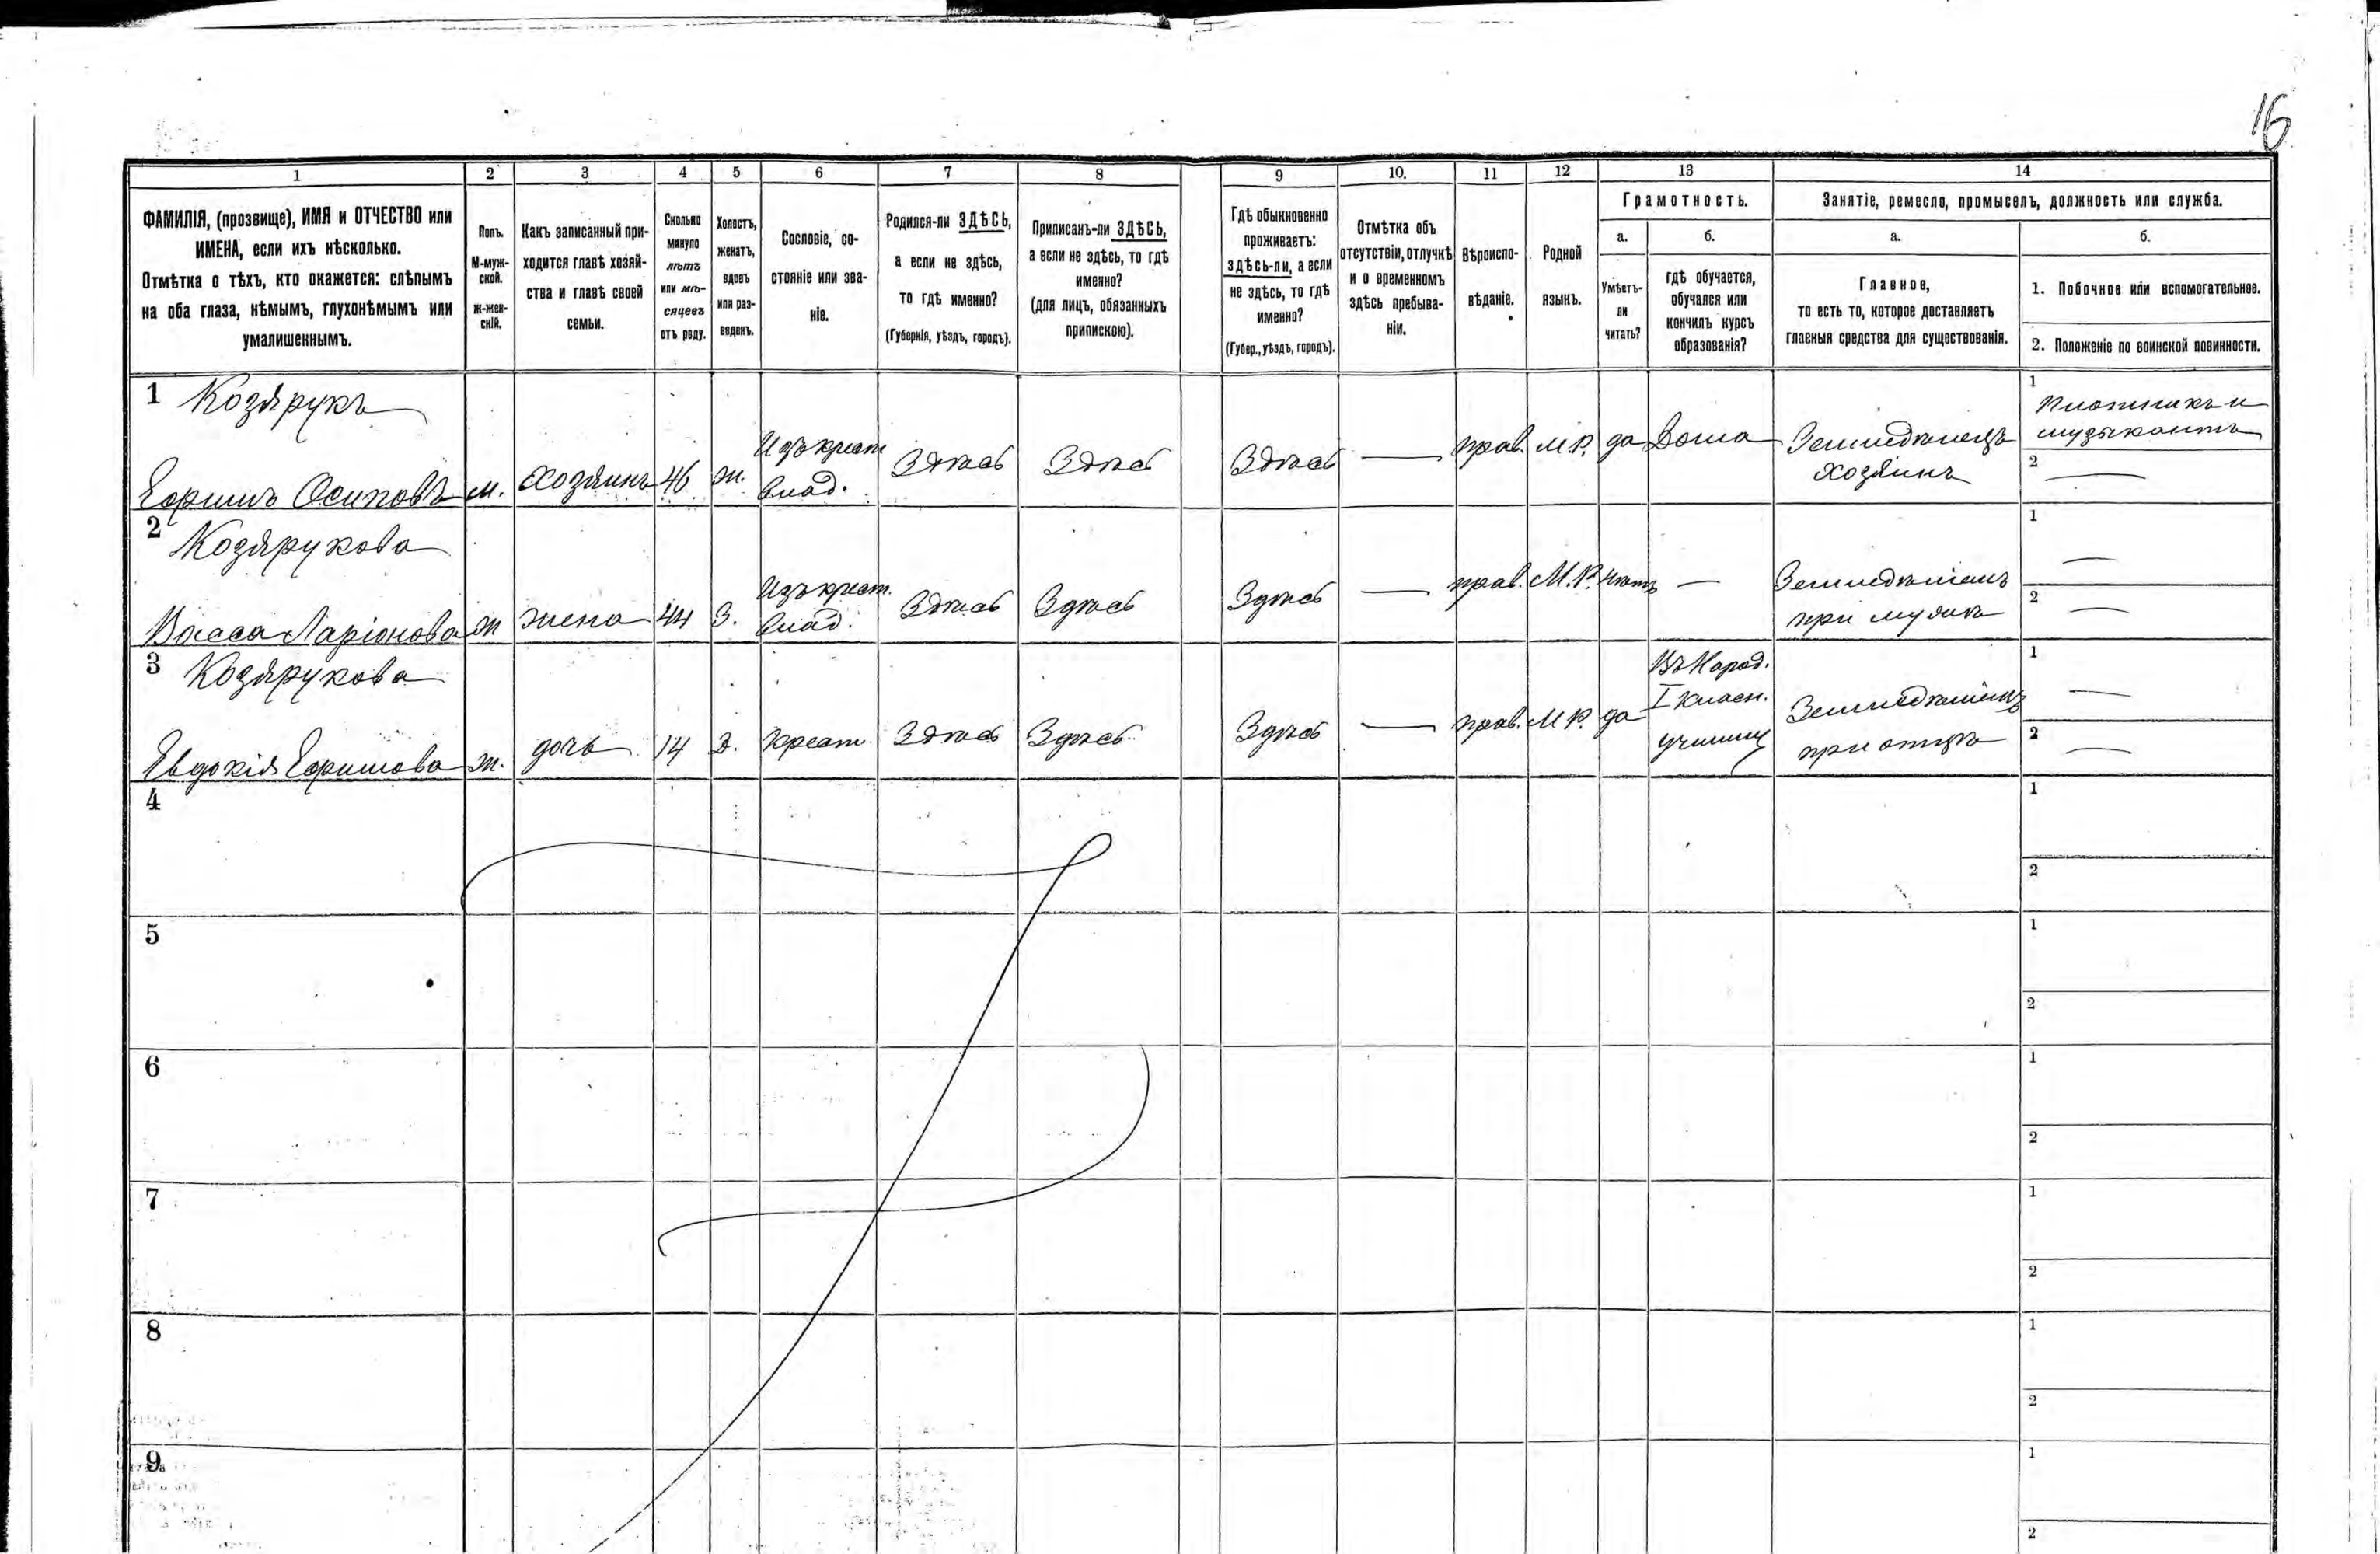 16
1 2 3 4 5 6 7 8 9 10. 11 12 13 14
ФАМИЛІЯ, (прозвище), ИМЯ и ОТЧЕСТВО или
ИМЕНА, если ихъ нѣсколько.
Отмѣтка о тѣхъ, кто окажется: слѣпымъ
на оба глаза, нѣмымъ, глухонѣмымъ или
умалишеннымъ.
Полъ.
М-муж-
ской.
ж-жен-
скій.
Какъ записанный при-
ходится главѣ хозяй-
ства и главѣ своей
семьи.
Сколько
минуло
лѣтъ
или мѣ-
сяцевъ
отъ роду.
Холостъ,
женатъ,
вдовъ
или раз-
веденъ.
Сословіе, со-
стояніе или зва-
ніе.
Родился-ли ЗДѢСЬ,
а если не здѣсь,
то гдѣ именно?
(Губернія, уѣздъ, городъ).
Приписанъ-ли ЗДѢСЬ,
а если не здѣсь, то гдѣ
именно?
(для лицъ, обязанныхъ
припискою).
Гдѣ обыкновенно
проживаетъ:
здѣсь-ли, а если
не здѣсь, то гдѣ
именно?
(Губер., уѣздъ, городъ).
Отмѣтка объ
отсутствіи, отлучкѣ
и о временномъ
здѣсь пребыва-
ніи.
Вѣроиспо-
вѣданіе.
Родной
языкъ.
Грамотность.
а.
Умѣетъ-
ли
читать?
б.
гдѣ обучается,
обучался или
кончилъ курсъ
образованія?
Занятіе, ремесло, промыселъ, должность или служба.
а.
Главное,
то есть то, которое доставляетъ
главныя средства для существованія.
б.
1. Побочное или вспомогательное.
2. Положеніе по воинской повинности.
1 Козярукъ
Ефимъ Осиповъ
м.
Хозяинъ
46
ж.
Изъ крест.
влад.
Здѣсь
Здѣсь
Здѣсь
—
прав.
М.Р.
да
Дома
Земледѣлецъ
Хозяинъ
1
Плотникъ и
музыкантъ
2
—
2 Козярукова
Васса Ларіонова
ж
жена
44
З.
Изъ крест.
влад.
Здѣсь
Здѣсь
Здѣсь
—
прав.
М.Р.
нѣтъ
—
Земледѣліемъ
при мужѣ
1
—
2
—
3 Козярукова
Евдокія Ефимова
ж.
дочь
14
Д.
крест.
Здѣсь
Здѣсь
Здѣсь
—
прав.
М.Р.
да
Въ Народ.
I класн.
училищ
Земледѣліемъ
при отцѣ
1
—
2
—
4
1
2
5
1
2
6
1
2
7
1
2
8
1
2
9
1
2